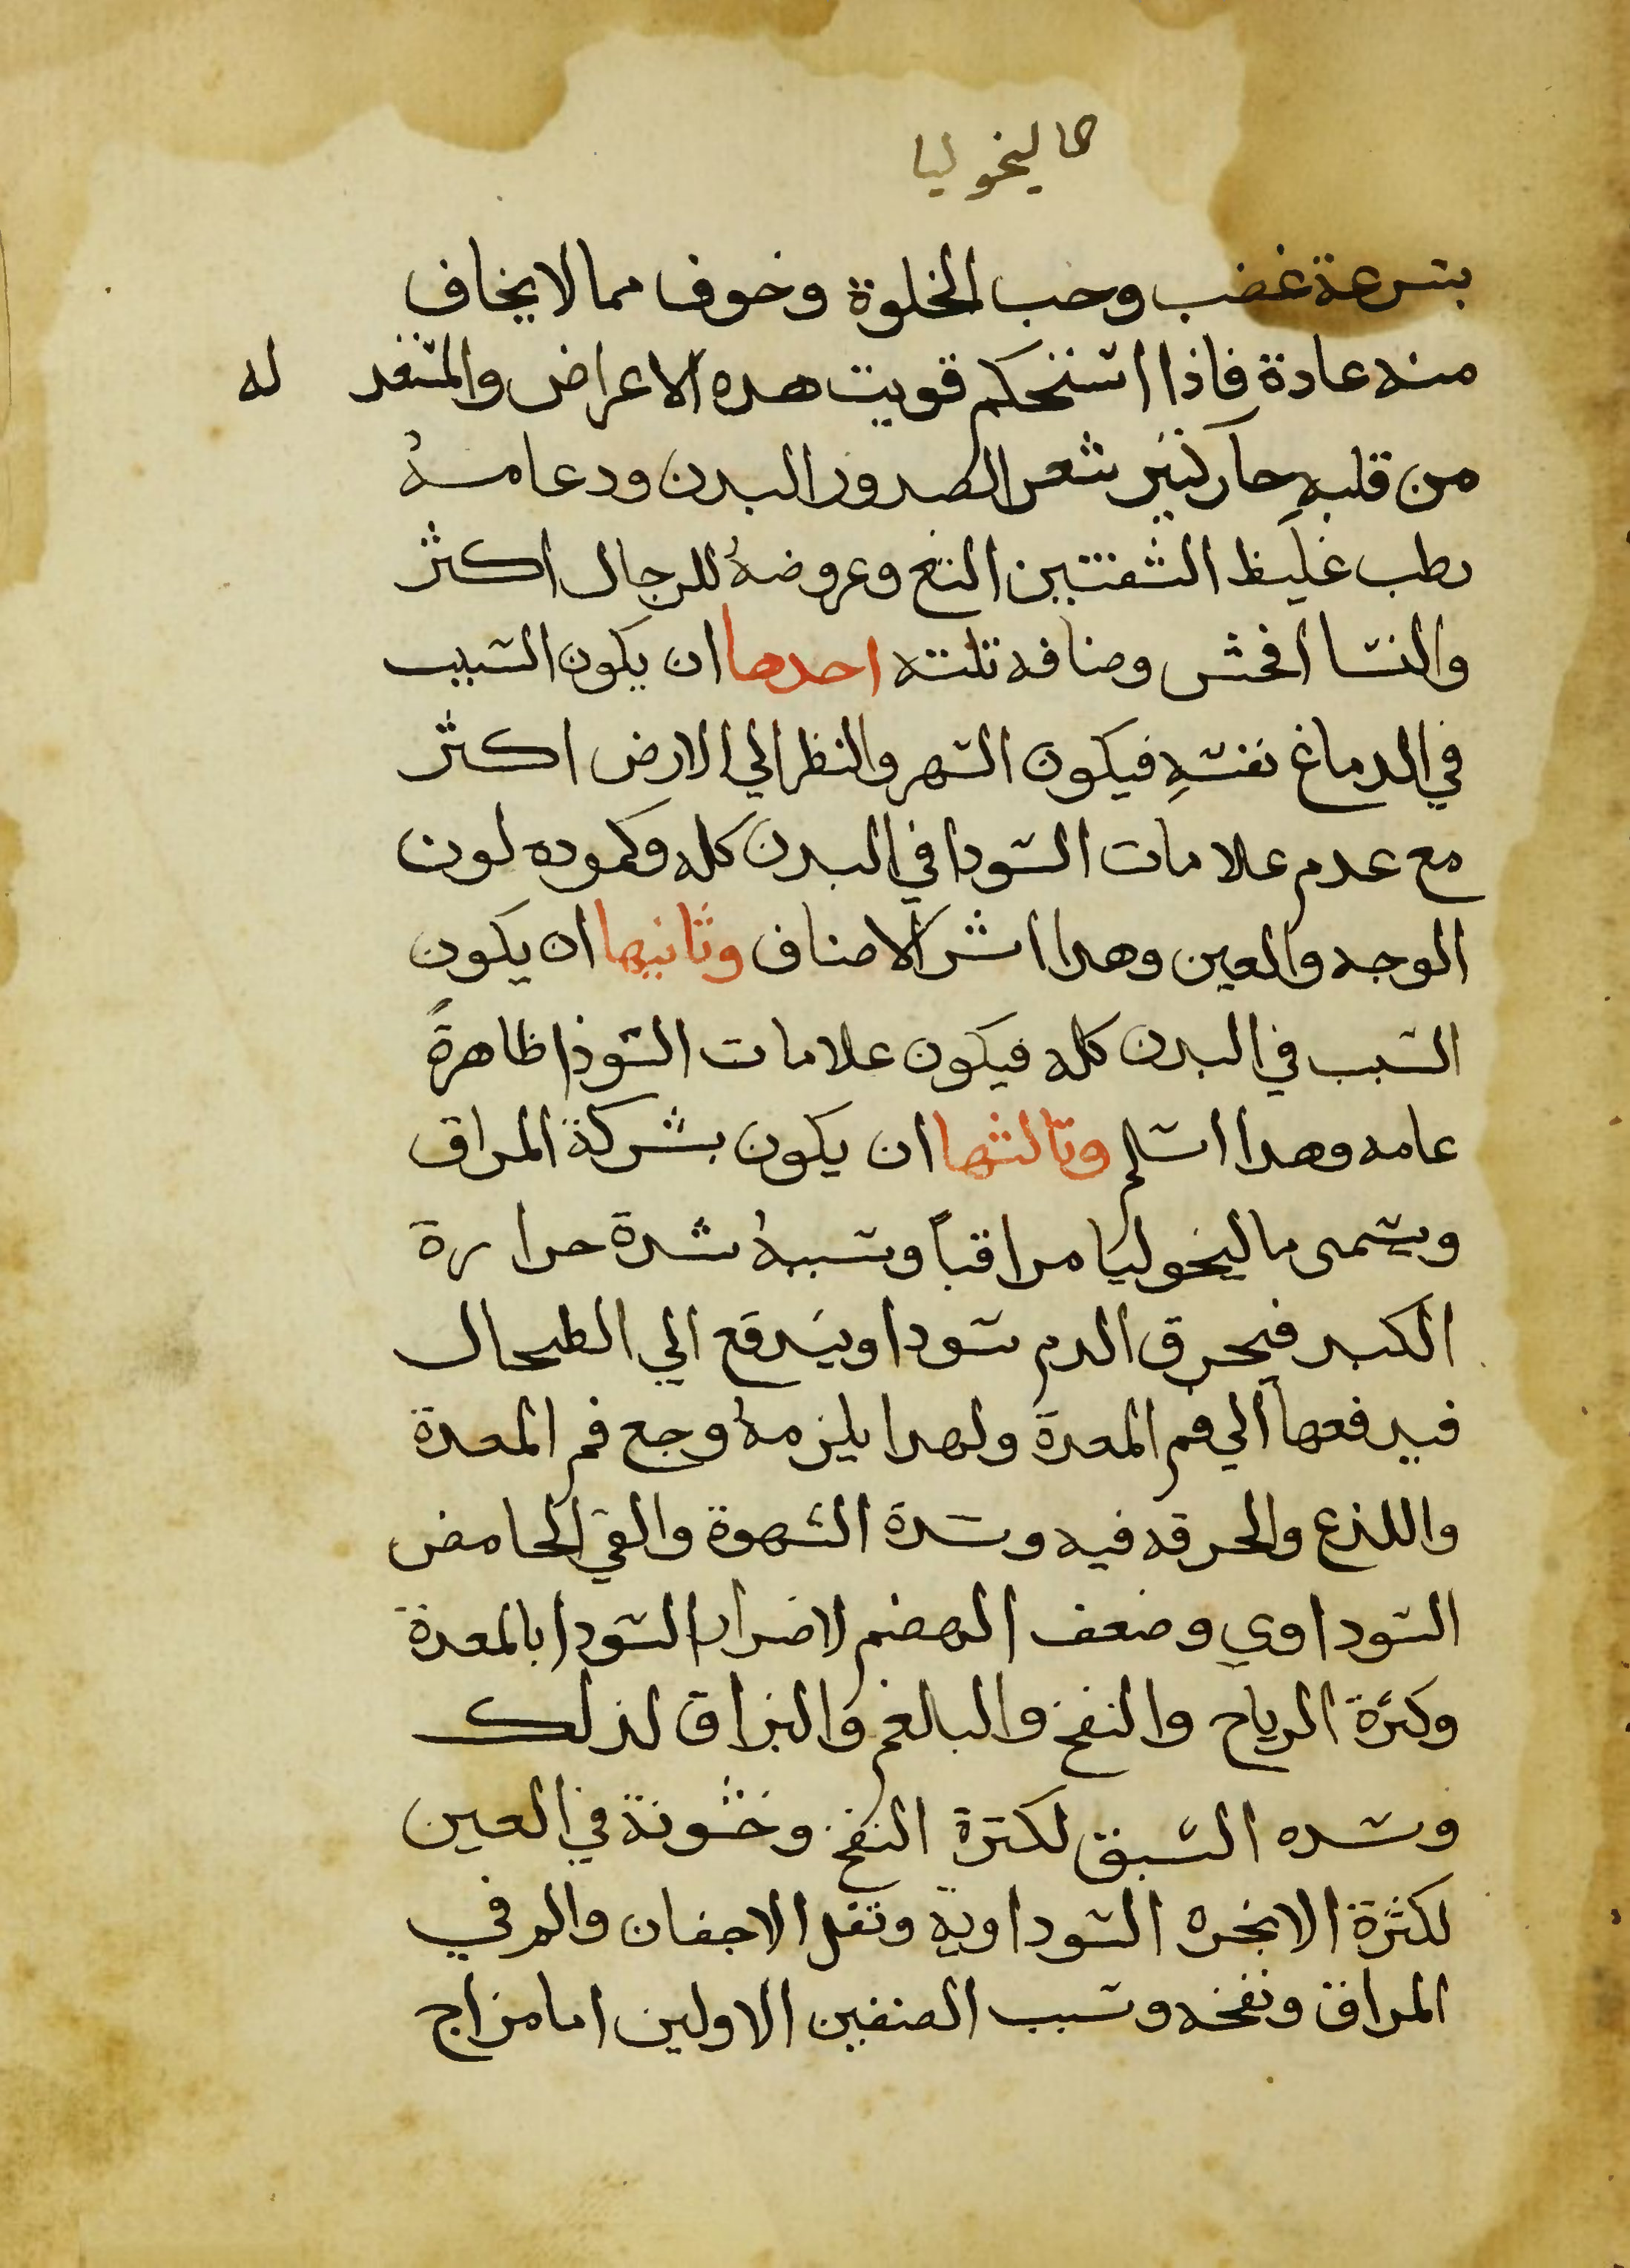 ماليخوليا
بسرعة غضب وحب الخلوة وخوف مما لا يخاف
منه عادة فاذا استحكم قويت هده الاعراض والمستعد له
من قلبه حار كثير شعر الصدر والبدن ودماغه
رطب غليظ الشفتين الثغ وعروضهُ للرجال اكثر
والنسا افحش وصنافه تلته احدها ان يكون السبب
في الدماغ نفسهِ فيكون السهر والنظر الي الارض اكثر
مع عدم علامات السودا في البدن كله وكموده لون
الوجه والعين وهدا اشر الاصناف وثانيها ان يكون
السبب في البدن كله فيكون علامات السودا ظاهرةً
عامه وهدا اسلم وثالثها ان يكون بشركة المراق
ويسمى ماليخوليا مراقياً وسببهُ شدة حرارة
الكبد فيحرق الدم سودا ويندفع الي الطحال
فيدفعها الي فم المعدة ولهدا يلزمهُ وجع فم المعدة
واللذع والحرقه فيه وشدة الشهوة والقي الحامض
السوداوي وضعف الهضم لاضرار السودا بالمعدة
وكثرة الرياح والنفخ والبالغم والبزاق لذلك
وشده الشبق لكترة النفخ وخشونة في العين
لكثرة الابخره السوداوية وتقل الاجفان والم في
المراق ونفخه وسبب الصنفين الاولين اما مزاج